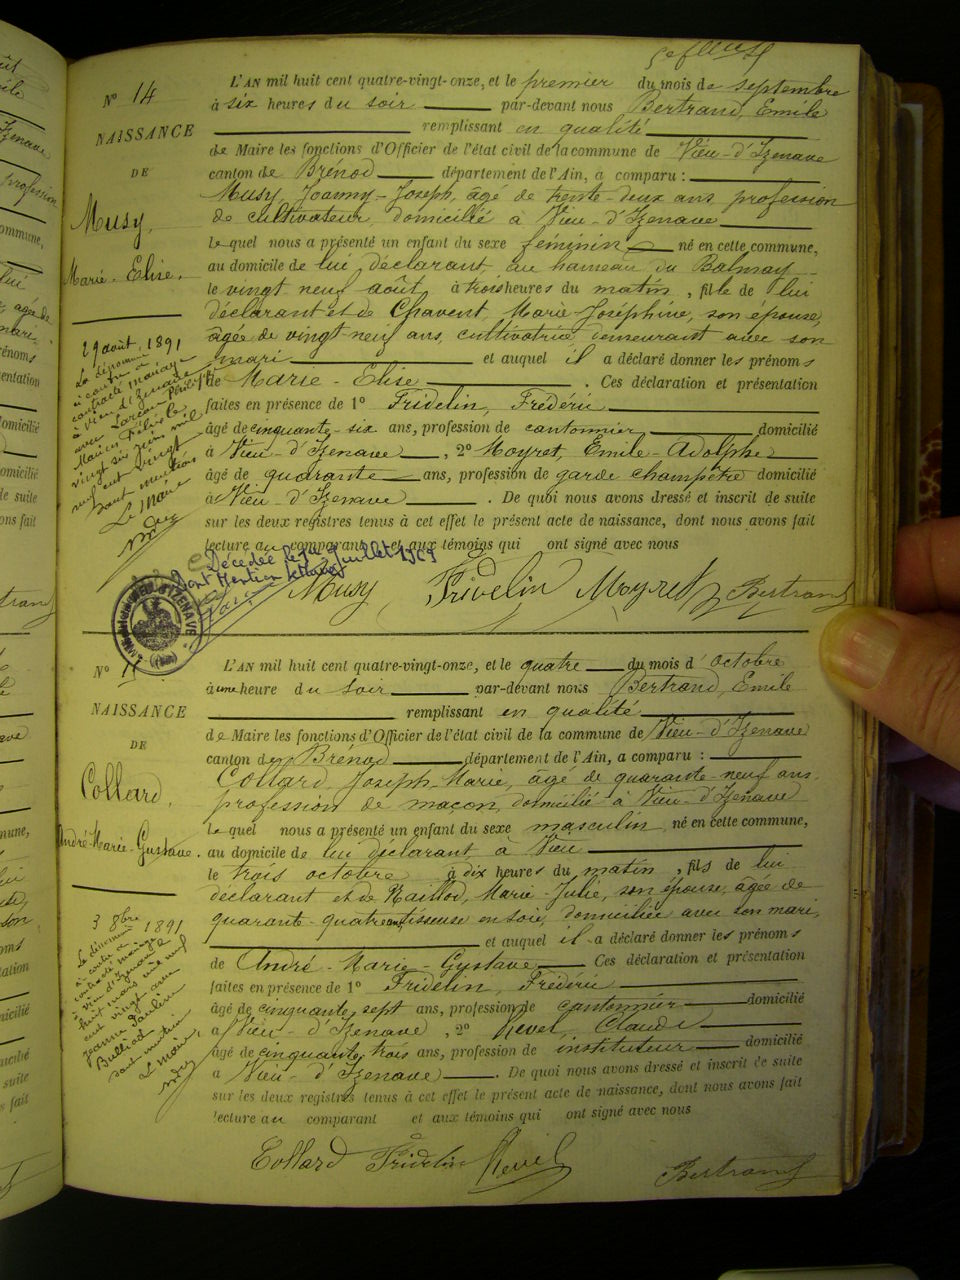 N° 14
NAISSANCE
DE
Musy,
Marie-Elise.
29 août, 1891
L'AN mil huit cent quatre-vingt-onze, et le premier du mois de septembre
à six heures du soir par-devant nous Bertrand, Emile
remplissant en qualité
de Maire les fonctions d'Officier de l'état civil de la commune de Vieu-d'Izenave
canton de Brénod département de l'Ain, a comparu :
Musy, Joanny-Joseph, âgé de trente-deux ans profession
de cultivateur, domicilié à Vieu-d'Izenave
lequel nous a présenté un enfant du sexe féminin né en cette commune,
au domicile de lui déclarant, au hameau du Balmay
le vingt neuf août à trois heures du matin, fille de lui
déclarant et de Chavent, Marie Joséphine, son épouse,
âgée de vingt neuf ans, cultivatrice, demeurant avec son
mari et auquel il a déclaré donner les prénoms
de Marie-Elise. Ces déclaration et présentation
faites en présence de 1° Fridelin, Frédéric
âgé de cinquante-six ans, profession de cantonnier domicilié
à Vieu-d'Izenave, 2° Moyret, Emile-Adolphe
âgé de quarante ans, profession de garde champêtre domicilié
à Vieu-d'Izenave. De quoi nous avons dressé et inscrit de suite
sur les deux registres tenus à cet effet le présent acte de naissance, dont nous avons fait
lecture au comparant et aux témoins qui ont signé avec nous
Décédée le Juillet 1969
Dont Mention
Musy Fridelin Moyret Bertrand
N° 15
NAISSANCE
DE
Collard,
André-Marie-Gustave.
3 8bre 1891
L'AN mil huit cent quatre-vingt-onze, et le quatre du mois d'octobre
à une heure du soir par-devant nous Bertrand, Emile
remplissant en qualité
de Maire les fonctions d'Officier de l'état civil de la commune de Vieu-d'Izenave
canton de Brénod département de l'Ain, a comparu :
Collard, Joseph-Marie, âgé de quarante-neuf ans,
profession de maçon, domicilié à Vieu-d'Izenave
lequel nous a présenté un enfant du sexe masculin, né en cette commune,
au domicile de lui déclarant, à Vieu
le trois octobre à dix heures du matin, fils de lui
déclarant et de Raillod, Marie-Julie, son épouse, âgée de
quarant-quatre ans, tisseuse en soie, domiciliée avec son mari,
et auquel il a déclaré donner les prénoms
de André-Marie-Gustave Ces déclaration et présentation
faites en présence de 1° Fridelin, Frédéric
âgé de cinquante sept ans, profession de cantonnier domicilié
à Vieu-d'Izenave, 2° Revel, Claude
âgé de cinquante trois ans, profession de instituteur domicilié
a Vieu-d'Izenave. De quoi nous avons dressé et inscrit de suite
sur les deux registres tenus à cet effet le présent acte de naissance, dont nous avons fait
lecture au comparant et aux témoins qui ont signé avec nous
Collard Fridelin Revel Bertrand